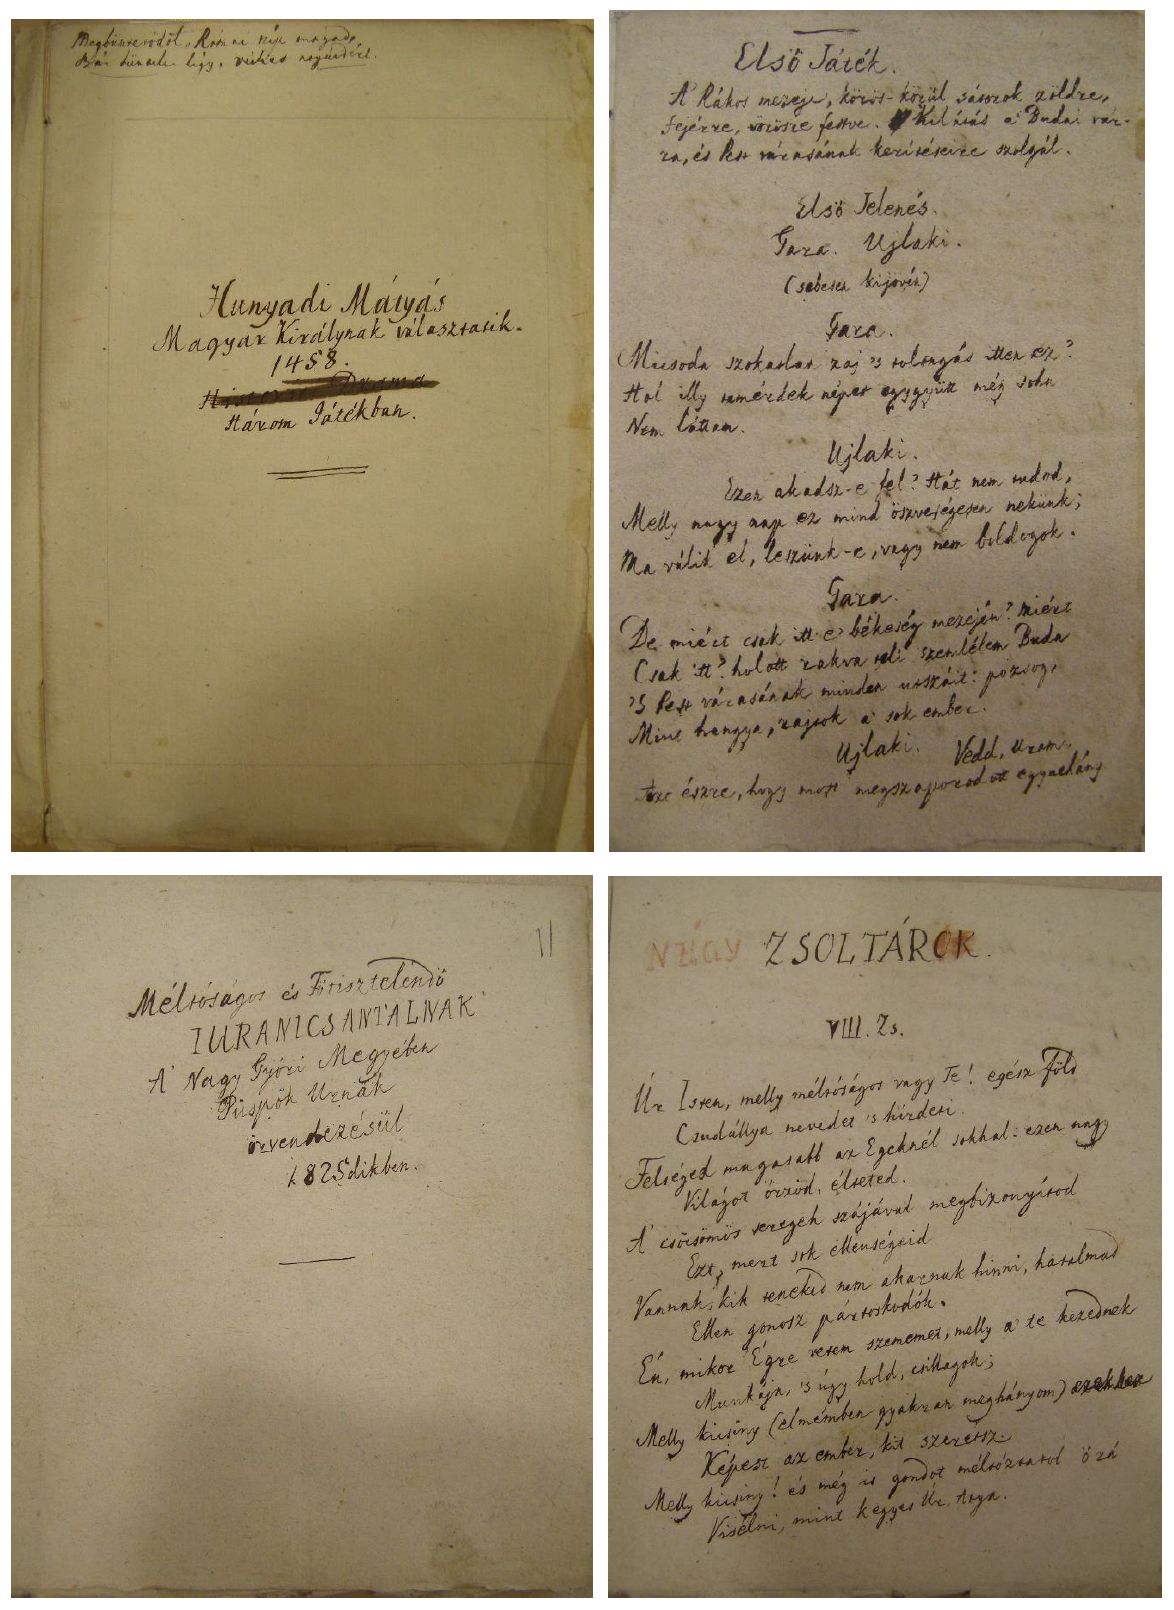 Megbüntetődöl, Római nép magad,
Bár bűntelen légy, vétkes
Hunyadi Mátyás
Magyar Királynak választatik.
1458.
Historiai Drama
Három Játékban.
Első Játék.
A' Rákos mezeje, körös-körül sátorok zöldre,
fejérre, vörösre festve. Kilátás a' Budai vár-
ra, és Pest városának kerítéseire szolgál.
Első Jelenés.
Gara. Ujlaki.
(sebesen kijövén)
Gara.
Micsoda szokatlan zaj 's tolongás itten ez?
Hol illy temérdek népet eggyütt még soha
Nem láttam.
Ujlaki.
Ezen akadsz-e fel? Hát nem tudod,
Melly nagy nap ez mind öszveségesen nekünk;
Ma válik el, leszünk-e, vagy nem boldogok.
Gara.
De miért csak itt e' békeség mezején? miért
Csak itt? holott rakva teli szemlélem Buda
'S Pest városának minden utszáit: pozsog,
Mint hangya, rajzok a' sok ember.
Ujlaki. Vedd, Uram,
észre, hogy most megszaporodott egynehány
11
Méltóságos és Főtisztelendő
IURANICS ANTALNAK
A' Nagy Győri Megyében
Püspök Urnak
örvendezésül
1825dikben.
NÉGY ZSOLTÁROK.
VIII. Zs.
Úr Isten, melly méltóságos vagy Te! egész Föld
Csudállya nevedet 's hirdeti.
Felséged magasabb az Egeknél sokkal: ezen nagy
Világot őrzöd, élteted.
A' csöcsömös seregek szájával megbizonyítod
Ezt, mert sok ellenségeid
Vannak, kik teneked nem akarnak hinni, hatalmad
Ellen gonosz pártoskodók.
Én, mikor Égre vetem szememet, melly a' te kezednek
Munkája, 's úgy hold, csillagok;
Melly kicsiny (elmémben gyakran meghányom) ezekhez
Képest az ember, kit szeretsz.
Melly kicsiny! és még is gondot méltóztatol órá
Viselni, mint kegyes Úr, Atya.